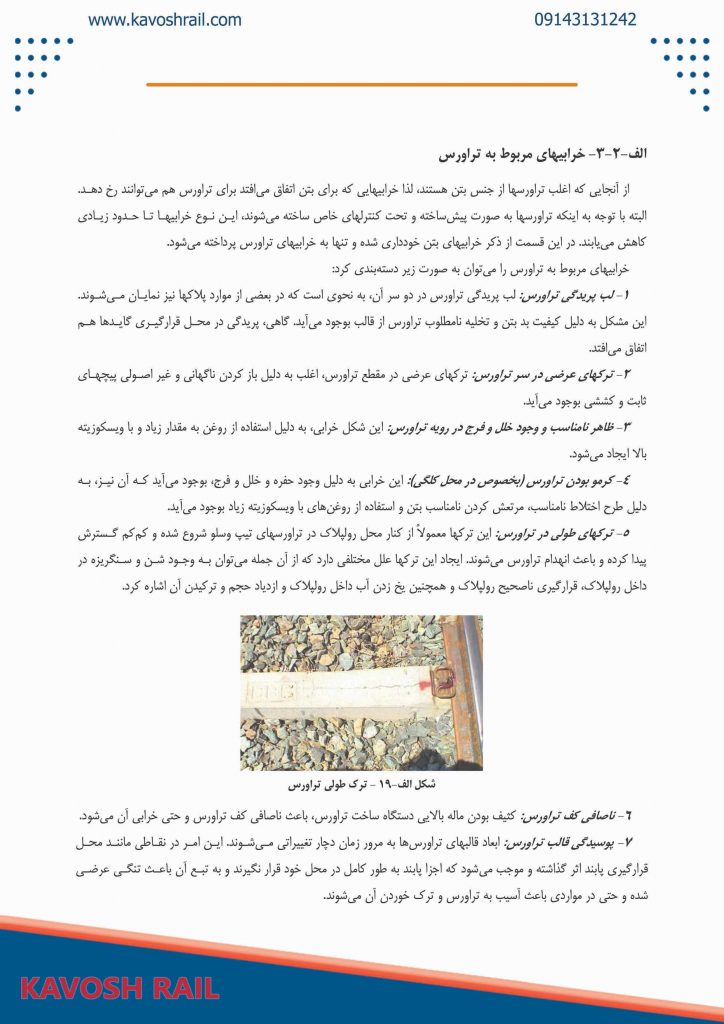 www.kavoshrail.com
09143131242
الف-۲-۳- خرابیهای مربوط به تراورس
از آنجایی که اغلب تراورسها از جنس بتن هستند، لذا خرابیهایی که برای بتن اتفاق می‌افتد برای تراورس هم می‌توانند رخ دهد.
البته با توجه به اینکه تراورسها به صورت پیش‌ساخته و تحت کنترلهای خاص ساخته می‌شوند، این نوع خرابیها تا حدود زیادی
کاهش می‌یابند. در این قسمت از ذکر خرابیهای بتن خودداری شده و تنها به خرابیهای تراورس پرداخته می‌شود.
خرابیهای مربوط به تراورس را می‌توان به صورت زیر دسته‌بندی کرد:
۱- لب پریدگی تراورس: لب پریدگی تراورس در دو سر آن، به نحوی است که در بعضی از موارد پلاکها نیز نمایان می‌شوند.
این مشکل به دلیل کیفیت بد بتن و تخلیه نامطلوب تراورس از قالب بوجود می‌آید. گاهی، پریدگی در محل قرارگیری گایدها هم
اتفاق می‌افتد.
۲- ترکهای عرضی در سر تراورس: ترکهای عرضی در مقطع تراورس، اغلب به دلیل باز کردن ناگهانی و غیر اصولی پیچهای
ثابت و کششی بوجود می‌آید.
۳- ظاهر نامناسب و وجود خلل و فرج در رویه تراورس: این شکل خرابی، به دلیل استفاده از روغن به مقدار زیاد و با ویسکوزیته
بالا ایجاد می‌شود.
۴- کرمو بودن تراورس (بخصوص در محل کلگی): این خرابی به دلیل وجود حفره و خلل و فرج، بوجود می‌آید که آن نیز، به
دلیل طرح اختلاط نامناسب، مرتعش کردن نامناسب بتن و استفاده از روغن‌های با ویسکوزیته زیاد بوجود می‌آید.
۵- ترکهای طولی در تراورس: این ترکها معمولاً از کنار محل رولپلاک در تراورسهای تیپ وسلو شروع شده و کم‌کم گسترش
پیدا کرده و باعث انهدام تراورس می‌شوند. ایجاد این ترکها علل مختلفی دارد که از آن جمله می‌توان به وجود شن و سنگریزه در
داخل رولپلاک، قرارگیری ناصحیح رولپلاک و همچنین یخ زدن آب داخل رولپلاک و ازدیاد حجم و ترکیدن آن اشاره کرد.
شکل الف-۱۹ - ترک طولی تراورس
۶- ناصافی کف تراورس: کثیف بودن ماله بالایی دستگاه ساخت تراورس، باعث ناصافی کف تراورس و حتی خرابی آن می‌شود.
۷- پوسیدگی قالب تراورس: ابعاد قالبهای تراورس‌ها به مرور زمان دچار تغییراتی می‌شوند. این امر در نقاطی مانند محل
قرارگیری پابند اثر گذاشته و موجب می‌شود که اجزا پابند به طور کامل در محل خود قرار نگیرند و به تبع آن باعث تنگی عرضی
شده و حتی در مواردی باعث آسیب به تراورس و ترک خوردن آن می‌شوند.
KAVOSH RAIL